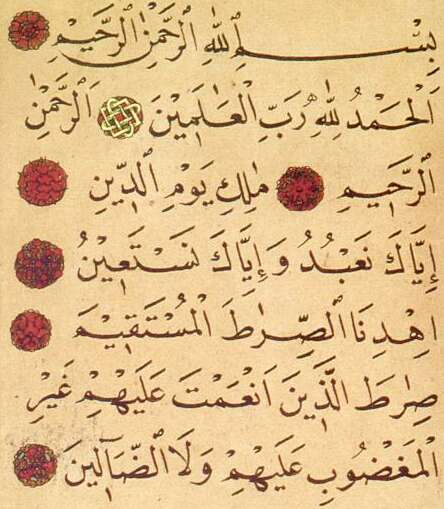 بِسْمِ ٱللَّهِ ٱلرَّحْمٰنِ ٱلرَّحِيمِ
اَلْحَمْدُ لِلّٰهِ رَبِّ ٱلْعَالَمِينَ ٱلرَّحْمٰنِ
ٱلرَّحِيمِ مٰلِكِ يَوْمِ ٱلدِّينِ
إِيَّاكَ نَعْبُدُ وَإِيَّاكَ نَسْتَعِينُ
اِهْدِنَا ٱلصِّرٰطَ ٱلْمُسْتَقِيمَ
صِرٰطَ ٱلَّذِينَ اَنْعَمْتَ عَلَيْهِمْ غَيْرِ
ٱلْمَغْضُوبِ عَلَيْهِمْ وَلَا ٱلضَّآلِّينَ